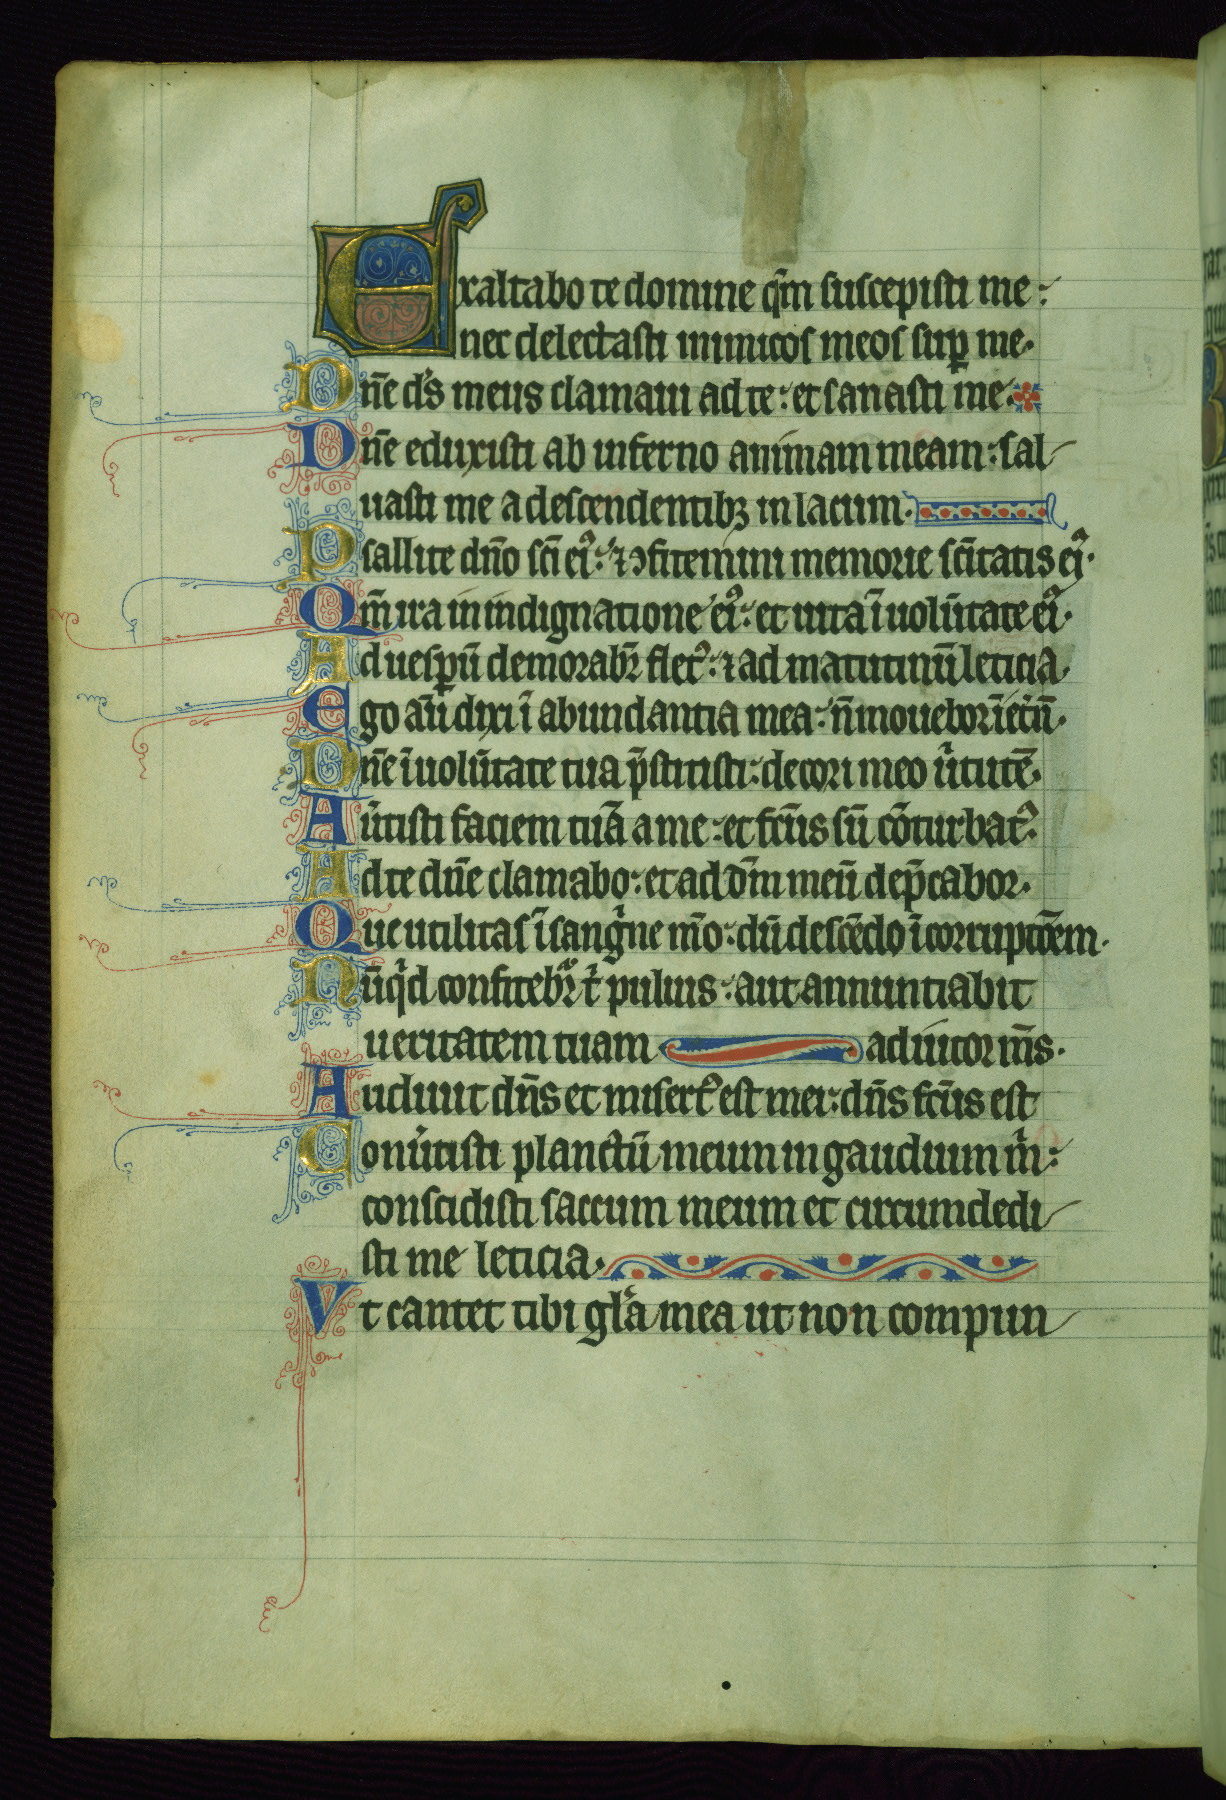 Exaltabo te domine qm̄ suscepisti me:
nec delectasti inimicos meos sup̱ me.
Dn̄e ds̄ meus clamaui ad te: et sanasti me.
Dn̄e eduxisti ab inferno animam meam: sal
uasti me a descendentibꝫ in lacum.
Psallite dn̄o sc̄i eiꝰ: ⁊ ↄfitemini memorie sc̄itatis eiꝰ.
Qm̄ ira in indignatione eiꝰ: et uita ī uolūtate eiꝰ.
Ad uesp̱ū demorabr̄ fletꝰ: ⁊ ad matutinū leticia.
Ego aūt dixi ī abundantia mea: n̄ mouebor ī et̄nū.
Dn̄e ī uolūtate tua p̄stitisti: decori meo u̓tutē.
Au̓tisti faciem tuā a me: et fc̄us sū cōturbatꝰ.
Ad te dn̄e clamabo: et ad dm̄ meū dep̄cabor.
Que utilitas ī sangⁱne mō: dū descēdo ī corruptōem.
Nūqⁱd confitebr̄ tⁱ puluis: aut annuntiabit
ueritatem tuam adiutor m̄s.
Audiuit dn̄s et misertꝰ est mei: dn̄s fc̄us est
Conu̓tisti planctū meum in gaudium mⁱ:
conscidisti saccum meum et circumdedi
sti me leticia.
Vt cantet tibi gl̄a mea ut non compun